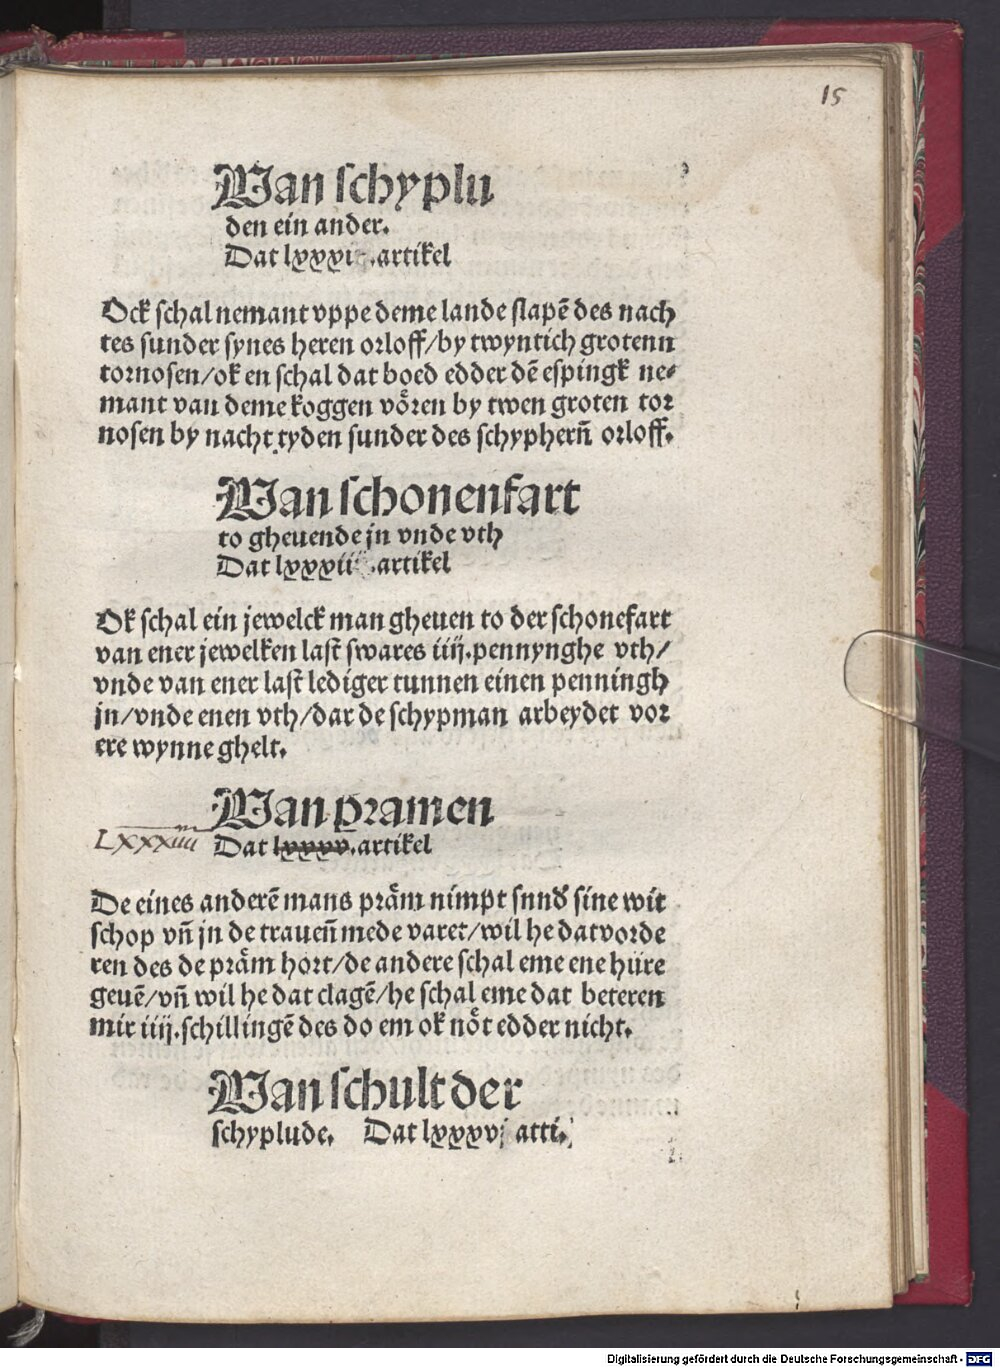 15
Wan schyplu
den ein ander.
Dat lxxxi .artikel
Ock schal nemant vppe deme lande slapē des nach
tes sunder synes heren orloff/by twyntich grotenn
tornosen/ok en schal dat boed edder dē espingk ne⸗
mant van deme koggen vöꝛen by twen groten toꝛ
nosen by nacht tyden sunder des schyphern̄ oꝛloff.
Wan schonenfart
to gheuende jn vnde vth
Dat lxxxii .artikel
Ok schal ein jewelck man gheuen to der schonefart
van ener jewelken last swares iiij.pennynghe vth/
vnde van ener last lediger tunnen einen penningh
jn/vnde enen vth/dar de schypman arbeydet voꝛ
ere wynne ghelt.
Wan pꝛamen
LXXXIIII Dat lxxxv.artikel
De eines anderē mans pꝛäm nimpt sund' sine wit
schop vn̄ jn de trauen̄ mede varet/wil he dat voꝛde
ren des de pꝛäm hoꝛt/de andere schal eme ene hüre
geuē/vn̄ wil he dat clagē/he schal eme dat beteren
mit iiij.schillingē des do em ok nöt edder nicht.
Wan schult der
schyplude. Dat lxxxv arti.
Digitalisierung gefördert durch die Deutsche Forschungsgemeinschaft - DFG